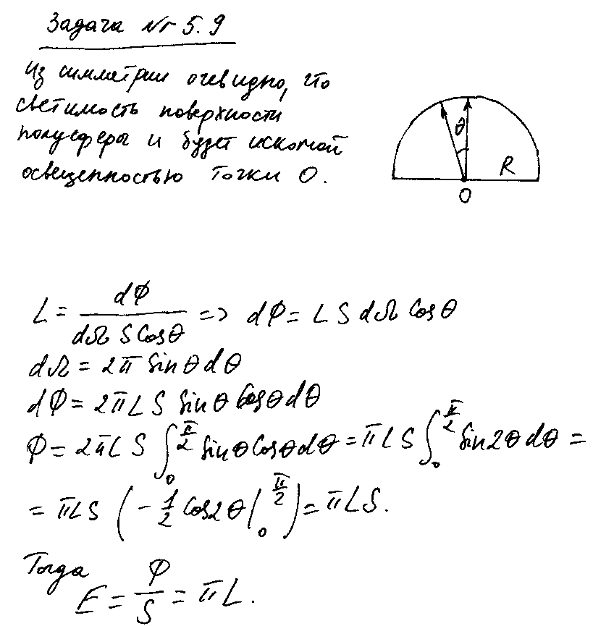 Задача № 5.9
Из симметрии очевидно, что
светимость поверхности
полусферы и будет искомой
освещенностью точки O.
θ
R
O
L = dΦ / dΩ S cosθ => dΦ = L S dΩ cosθ
dΩ = 2π sinθ dθ
dΦ = 2πL S sinθ cosθ dθ
Φ = 2πLS ∫₀^(π/2) sinθ cosθ dθ = πLS ∫₀^(π/2) sin2θ dθ =
= πLS (-1/2 cos2θ |₀^(π/2)) = πLS.
Тогда
E = Φ/S = πL.